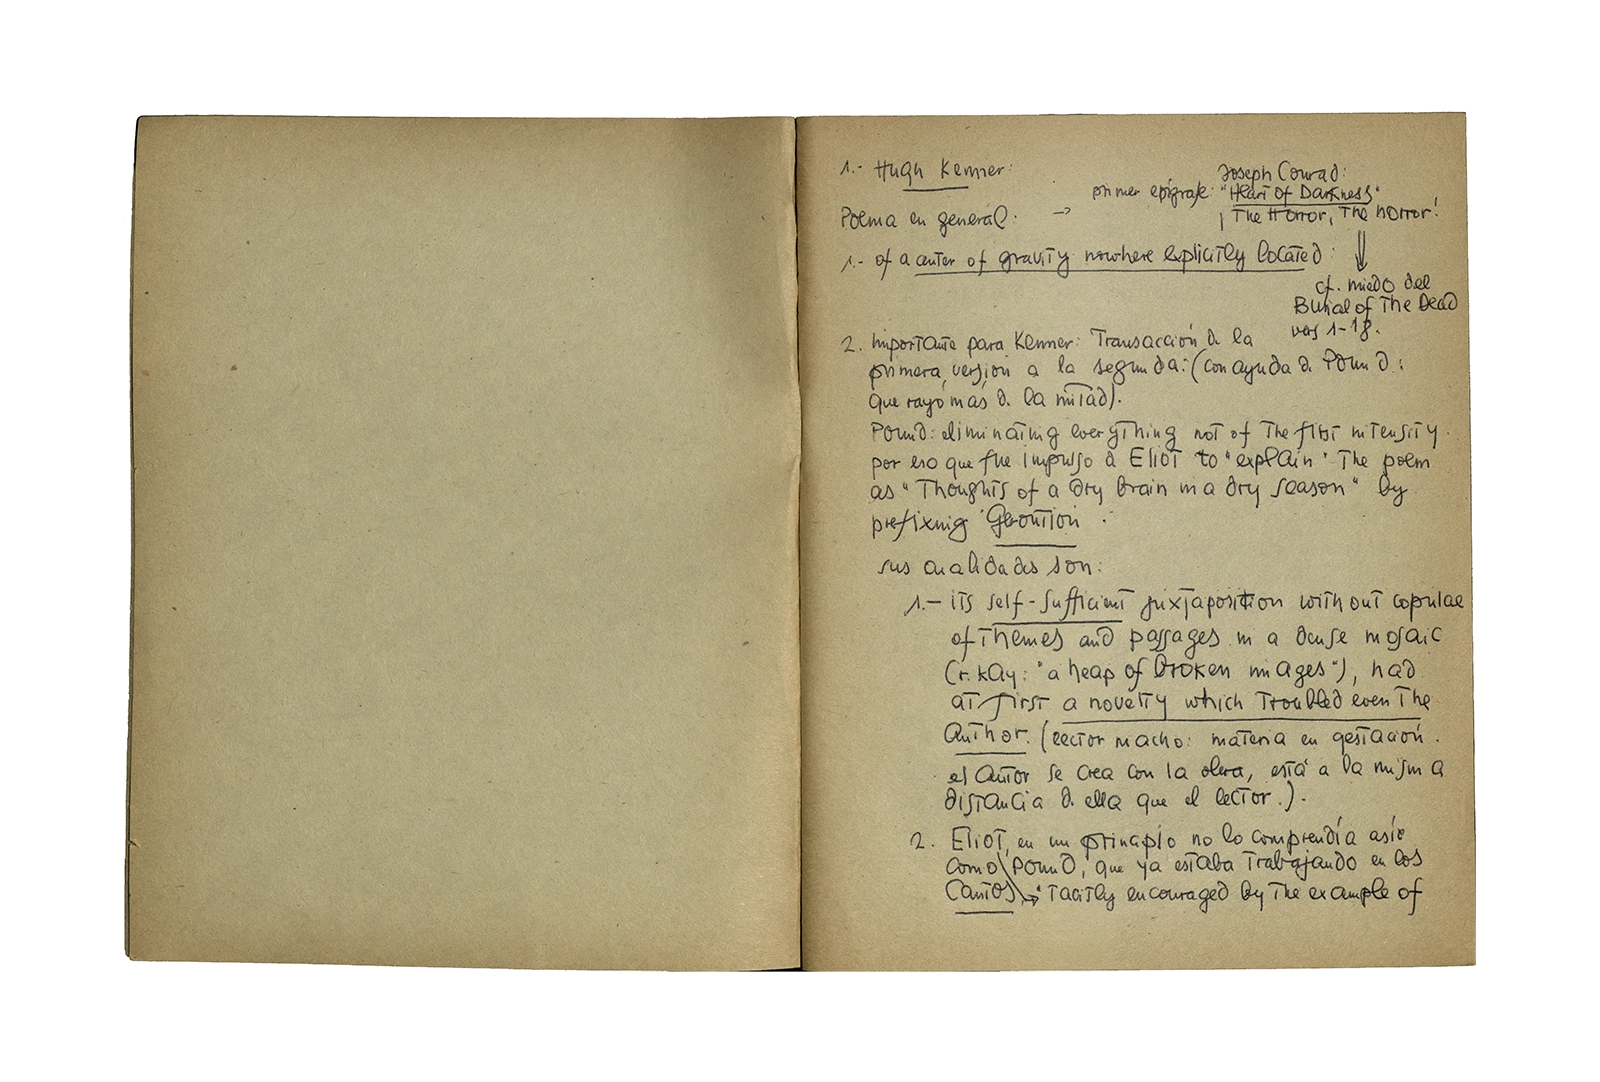 1.- Hugh Kenner:
Joseph Conrad:
primer epígrafe: "Heart of Darkness"
Poema en general. → ¡ The Horror, The horror!
1.- of a center of gravity nowhere explicitly located:
cf. miedo del
Burial of The Dead
vers 1-18.
2. Importante para Kenner: Transacción de la
primera versión a la segunda: (con ayuda d. Pound:
que rayó más d. la mitad).
Pound: eliminating everything not of The first intensity.
por eso que fue impulso a Eliot to "explain" The poem
as "Thoughts of a dry brain in a dry season" by
prefixing Gerontion.
sus cualidades son:
1.- its self-sufficient juxtaposition without copulae
of Themes and passages in a dense mosaic
"a heap of broken images"), had
at first a novelty which Troubled even The
Author. (lector macho: materia en gestación.
el autor se crea con la obra, está a la misma
distancia d. ella que el lector.).
2. Eliot, en un principio no lo comprendía así
como Pound, que ya estaba Trabajando en los
Cantos → "Tacitly encouraged by The example of